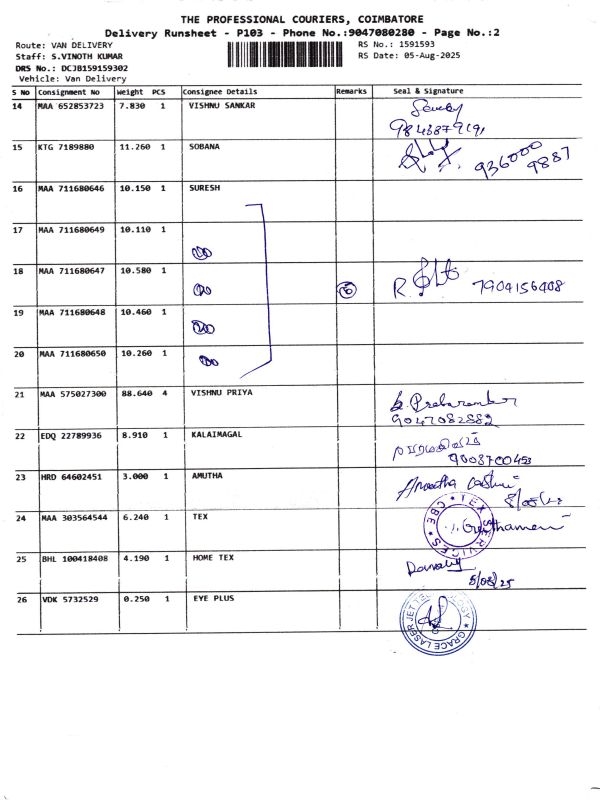 THE PROFESSIONAL COURIERS, COIMBATORE
Delivery Runsheet - P103 - Phone No.:9047080280 - Page No.:2
Route: VAN DELIVERY
RS No.: 1591593
Staff: S.VINOTH KUMAR
RS Date: 05-Aug-2025
DRS No.: DCJB159159302
Vehicle: Van Delivery
S No Consignment No Weight PCS Consignee Details Remarks Seal & Signature
14 MAA 652853723 7.830 1 VISHNU SANKAR
15 KTG 7189880 11.260 1 SOBANA
936000
9887
16 MAA 711680646 10.150 1 SURESH
17 MAA 711680649 10.110 1
18 MAA 711680647 10.580 1 5 R. 7904156408
19 MAA 711680648 10.460 1
20 MAA 711680650 10.260 1
21 MAA 575027300 88.640 4 VISHNU PRIYA
9047082882
22 EDQ 22789936 8.910 1 KALAIMAGAL
23 HRD 64602451 3.000 1 AMUTHA
24 MAA 303564544 6.240 1 TEX
TEX SERVICES * CBE *
25 BHL 100418408 4.190 1 HOME TEX
5/08/25
26 VDK 5732529 0.250 1 EYE PLUS
GRACE LASERJET TECHNOLOGY